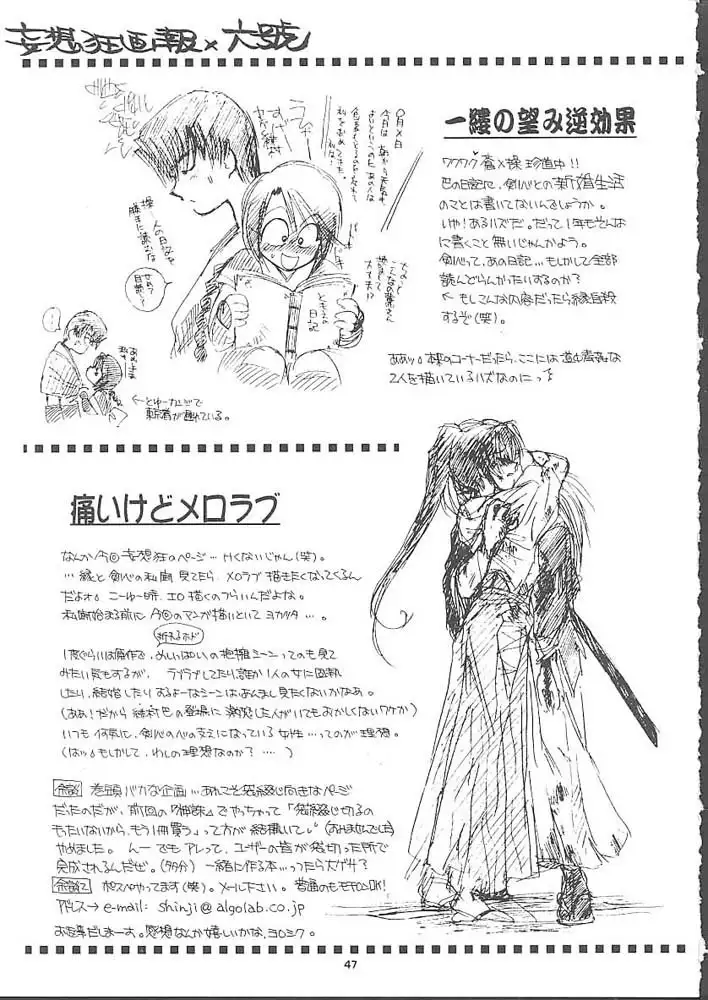 妄想狂画報×六號
一縷の望み逆効果
ワクワク蒼×操珍道中!!
巴の日記に、剣心との新婚生活
のことは書いてないんでしょうか。
いや!あるハズだ。だって1年もそんな
に書くこと無いじゃんかよう。
剣心って、あの日記…もしかして全部
読んどらんかったいするのか?
← もしこんな内容だったら縁自殺
するぞ(笑)。
2人を描いているハズなのにっ
〇月×日
ともえの
日記
痛いけどメロラブ
なんか今回妄想狂のページ…
…縁と剣心の私闘見てたら、メロラブ描きたくなってくるん
だよォ。こーゆー時、エロ描くのつらいんだよな。
私闘始まる前に今回のマンガ描いといてヨカッタ…。
折れるホド
1度ぐらいは原作で、めいっぱいの抱擁シーンってのも見て
みたい気もするが、ラブラブしてたり誰か1人の女に固執
したり、結婚したりするよーなシーンはあんまし見たくないかなあ。
(ああ!だから雪代巴の登場に激怒した人がいてもおかしくないワケか)
いつも何気に、剣心の心の支えになっている女性…ってのが理想。
(はっ。もしかして、わしの理想なのか?……)
余談1 巻頭バカな企画…あれこそ袋綴じ向きなページ
だったのだが、前回の でやっちゃって「袋綴じ切るの
もったいないから、もう1冊買う」って方が結構いて。(すみませんでした)
やめました。んーでもアレって、ユーザーの皆が袋切った所で
完成されるんだぜ。(多分) 一緒に作る本…ったら大ゲサ?
余談2 ポスペやってます(笑)。メール下さい。普通のもモチロンOK!
アドレス→ e-mail: shinji@algolab.co.jp
お返事だしまーす。感想なんか嬉しいかな、ヨロシク。
47